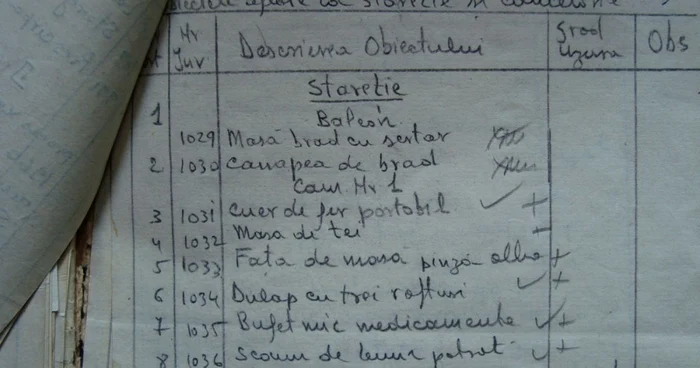 Nr Inv Descrierea Obiectului Grad Uzura Obs
Staretie
Balcon
1 1029 Masă brad cu sertar
2 1030 Canapea de brad
Cam. Nr 1
3 1031 Cuer de fer portabil ✓ +
4 1032 Masa de tei +
5 1033 Fata de masă pinză albă +
6 1034 Dulap cu trei rafturi ✓ +
7 1035 Bufet mic medicamente ✓ +
8 1036 Scaun de lemn patrat ✓ +